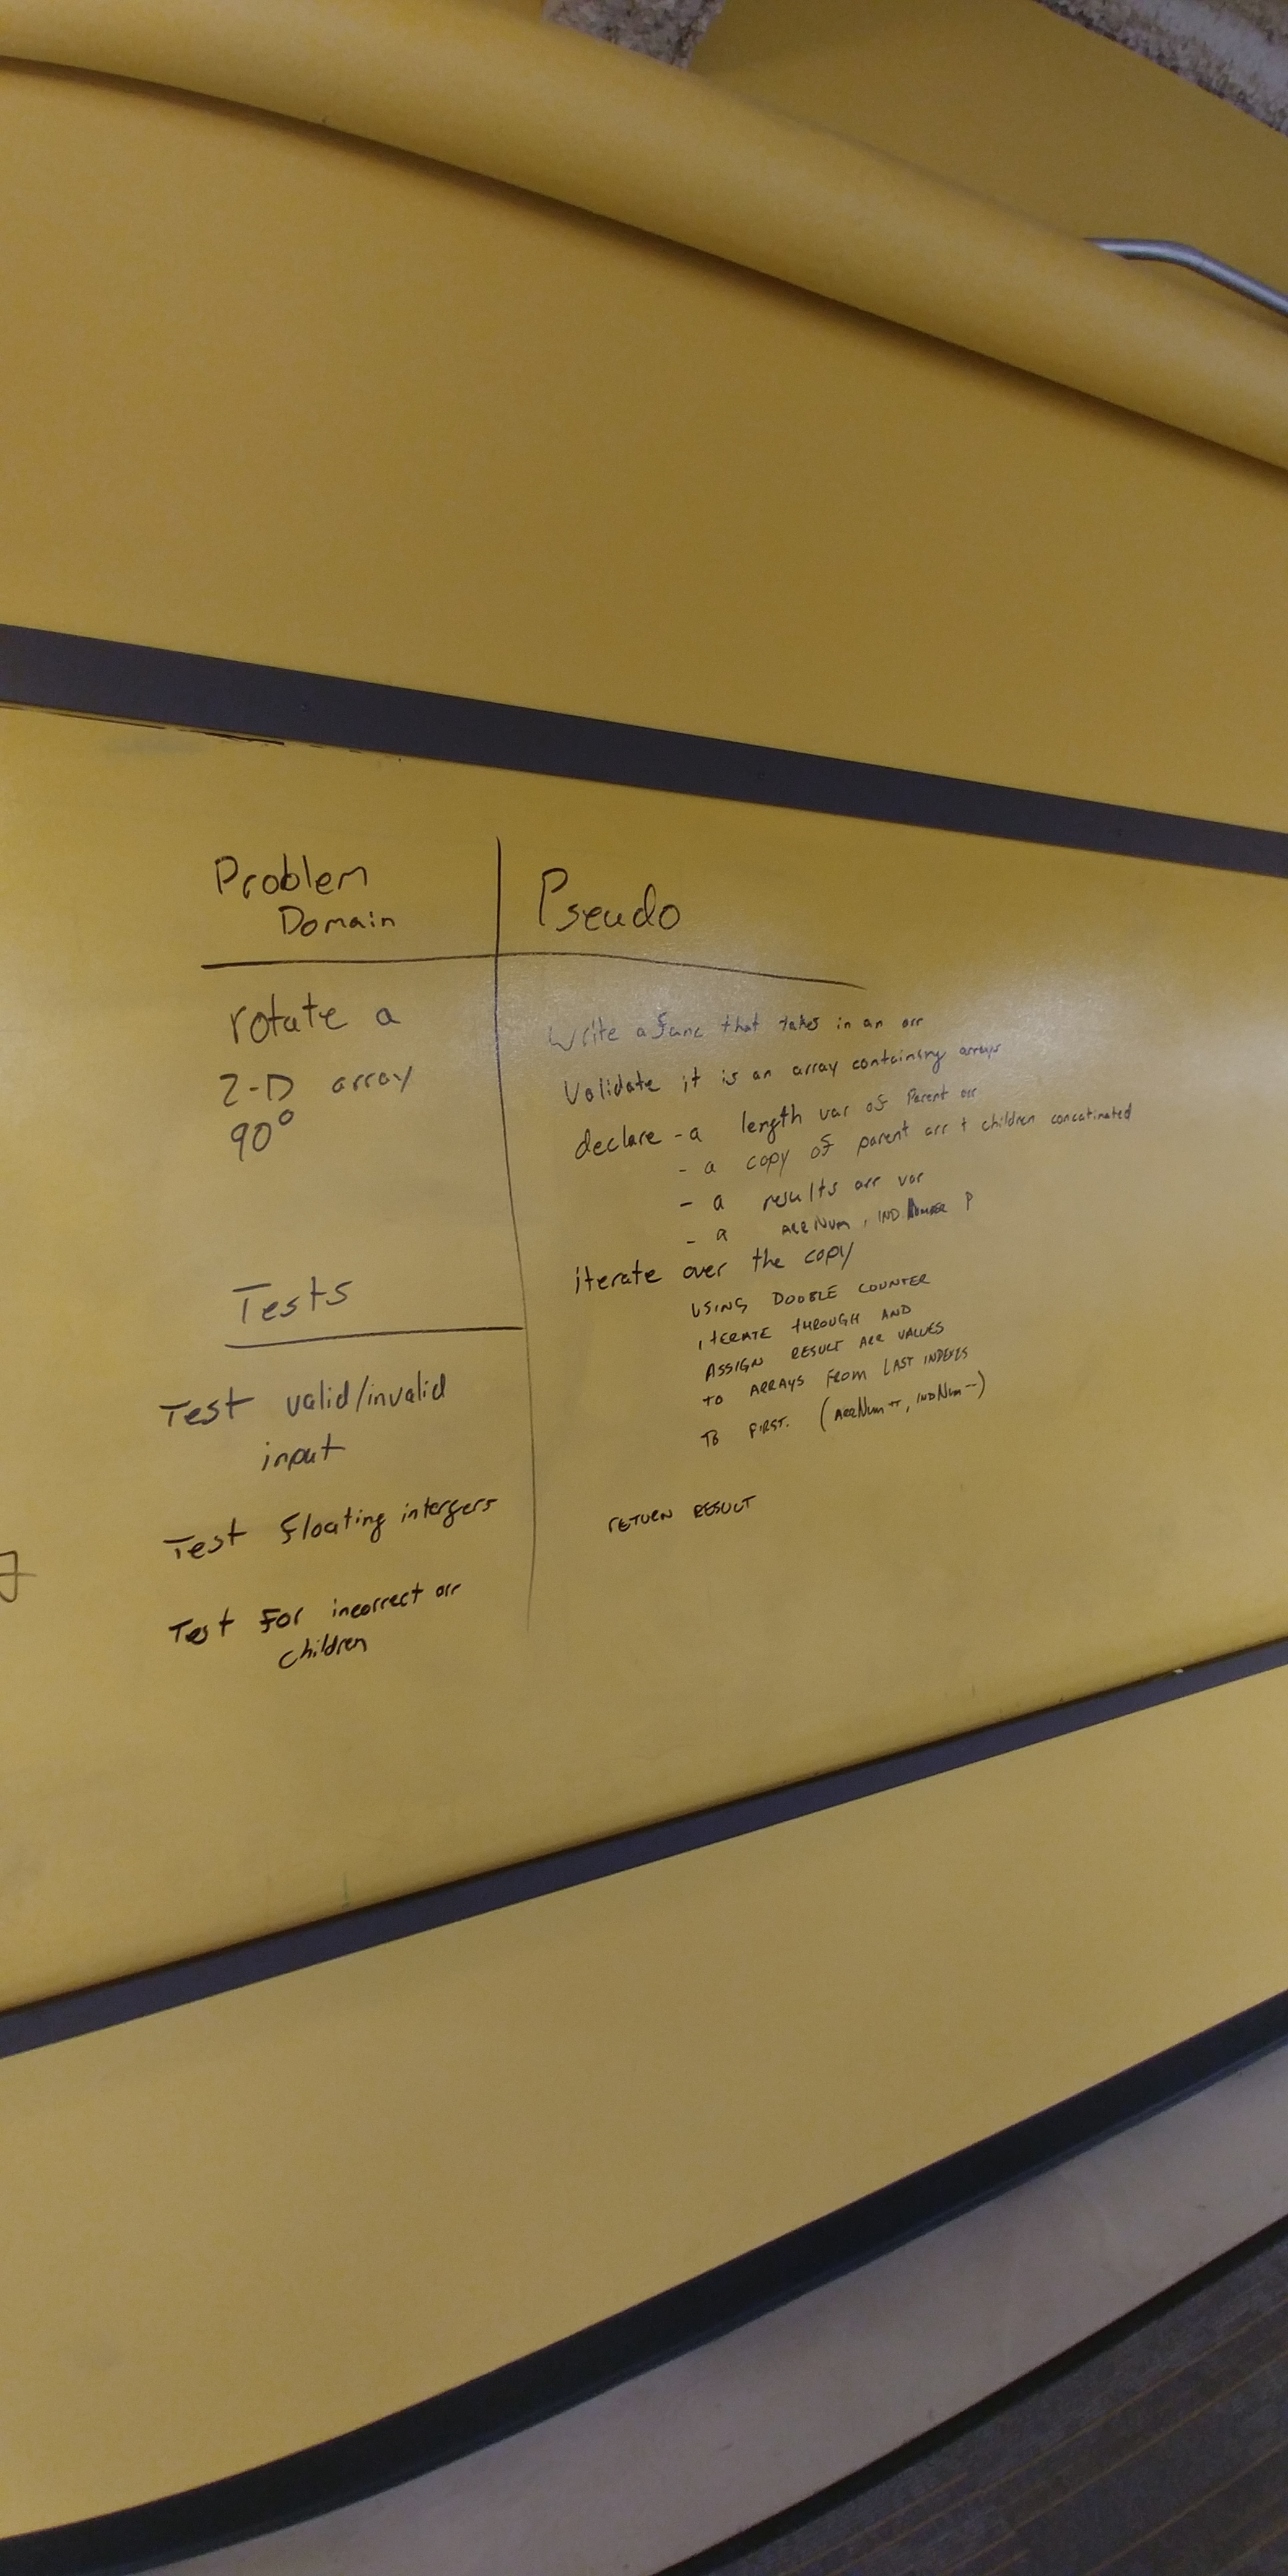 Problem
Domain
rotate a
2-D array
90°
Tests
Test valid/invalid
input
Test floating intergers
Test for incorrect arr
children
Pseudo
Write a func that takes in an arr
Validate it is an array containing arrays
declare - a length var of Parent arr
- a copy of parent arr + children concatinated
- a results arr var
- a ARR NUM, IND
iterate over the copy
USING DOUBLE COUNTER
ITERATE THROUGH AND
ASSIGN RESULT ARR VALUES
TO ARRAYS FROM LAST INDEXES
TO FIRST. (ARRNUM++, INDNUM--)
RETURN RESULT